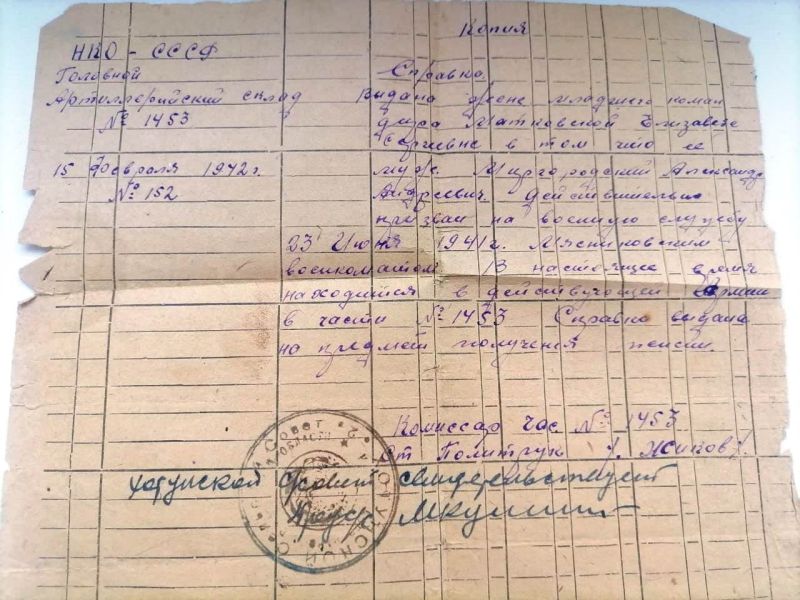 Копия
НКО - СССР
Головной
Артиллерийский склад
№ 1453
15 февраля 1942 г.
№ 152
Справка
Выдана жене младшего коман
дира Матковской Елизавете
Сергевне в том что ее
муж. Миргородский Александр
Андреевич действительно
призван на военную службу
23 Июня 1941 г. Мястковским
военкоматом В настоящее время
находится в действующей Армии
в части № 1453 Справка выдана
на предмет получения пенсии.
Комиссар час № 1453
Ст Политрук /. Жиков /.
сельсовет свидетельствует
Совет